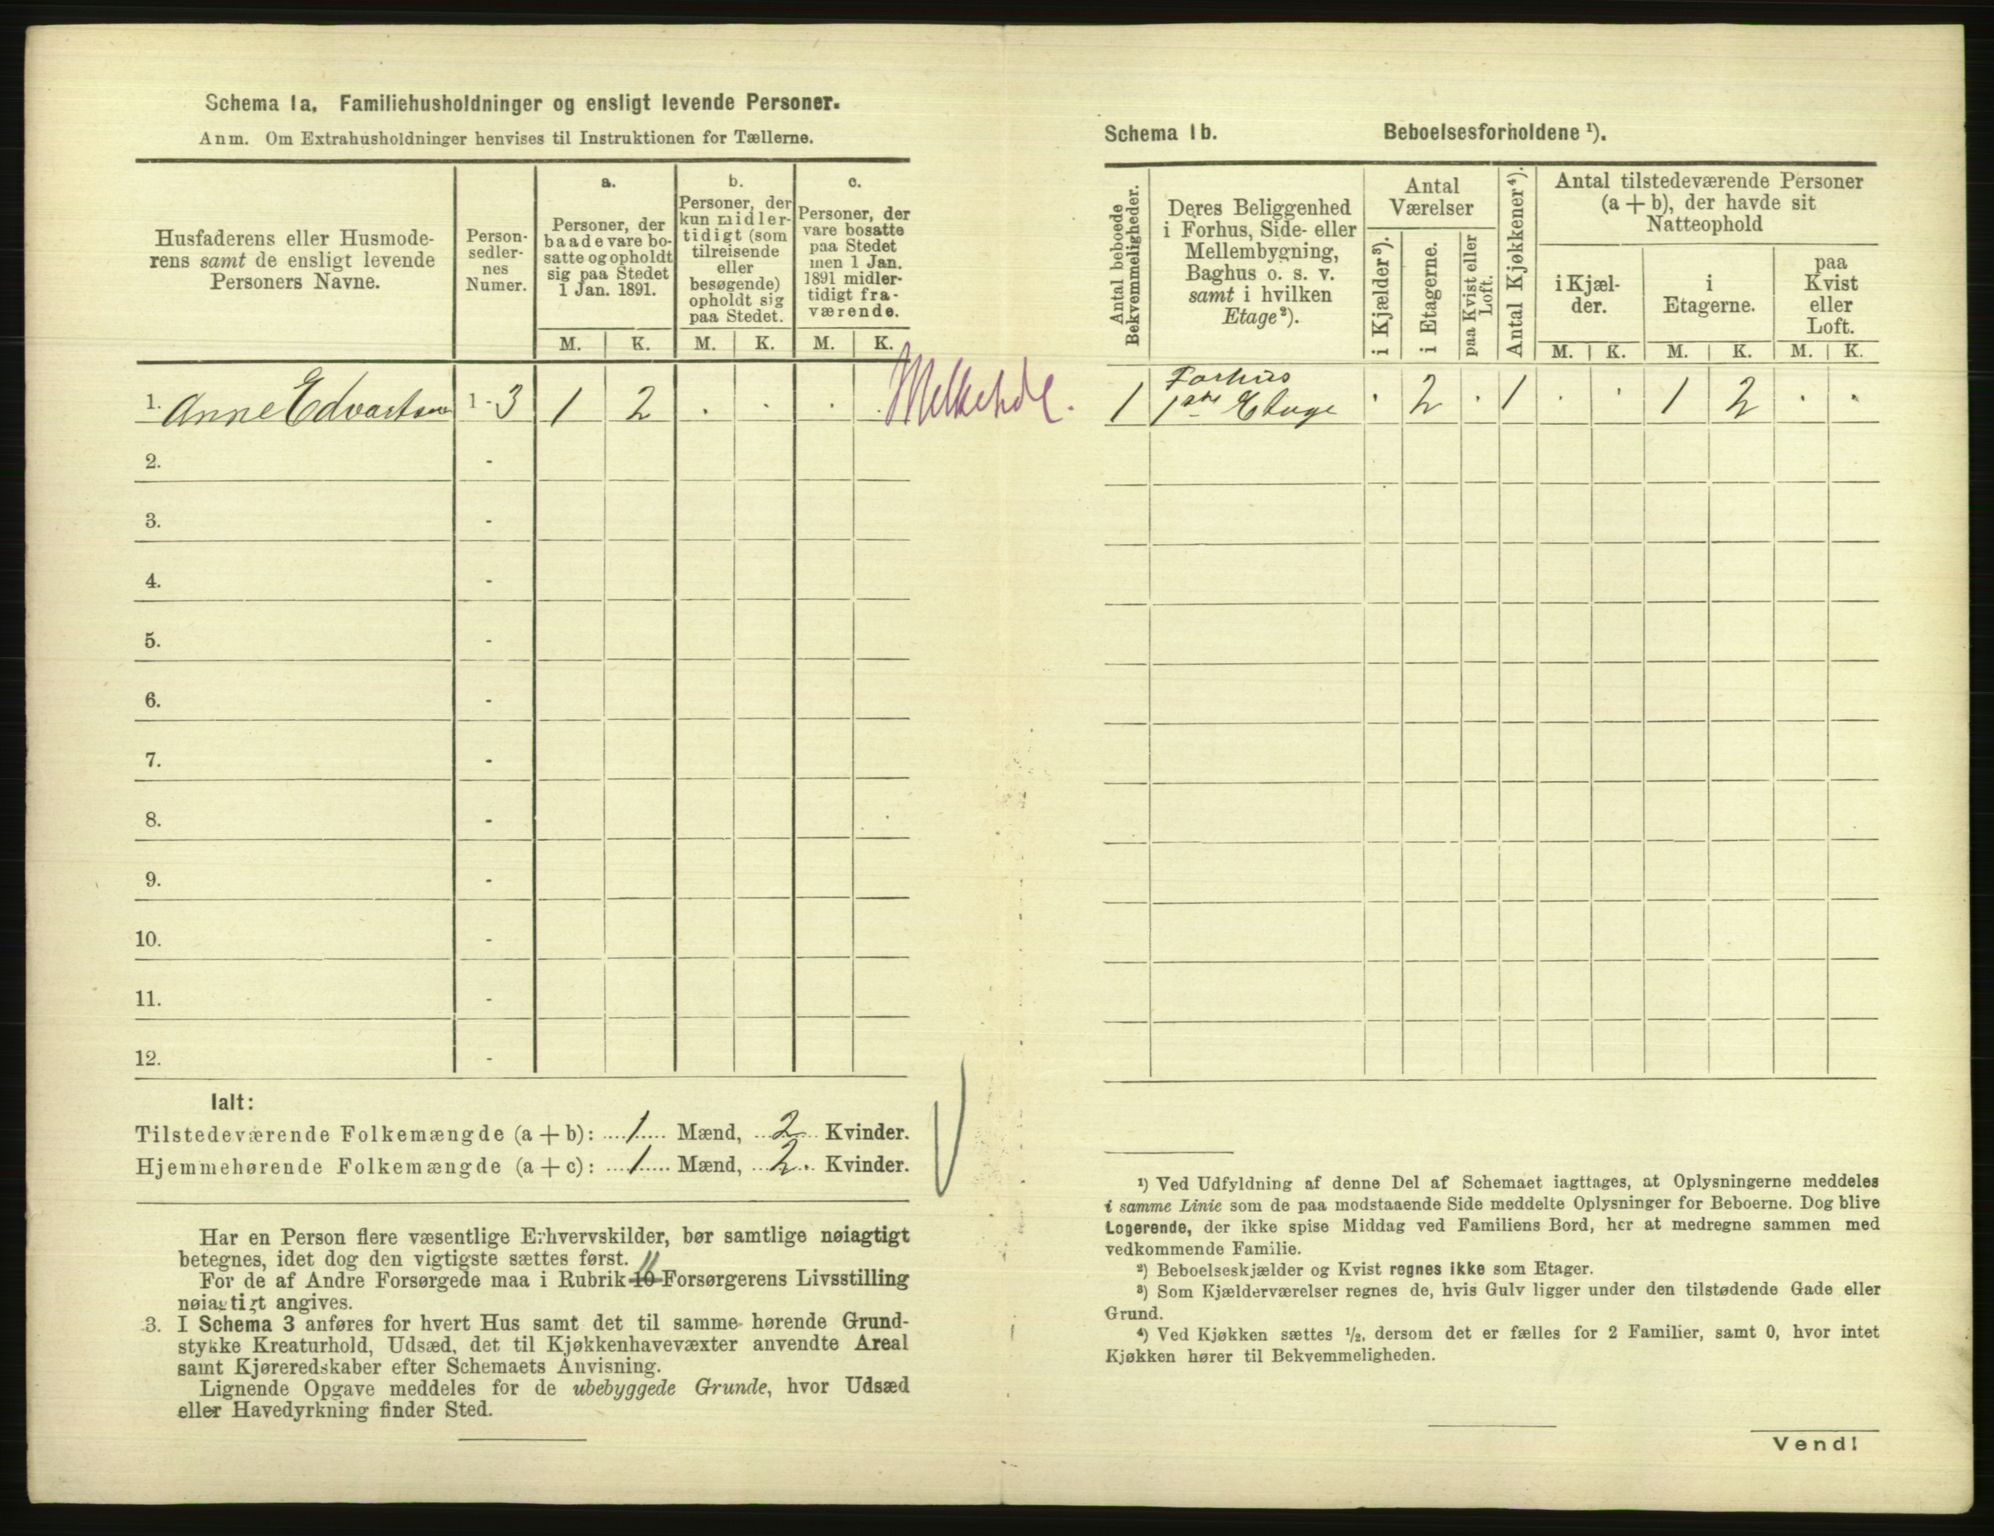 Schema 1a. Familiehusholdninger og ensligt levende Personer.
Anm. Om Extrahusholdninger henvises til Instruktionen for Tællerne.
Husfaderens eller Husmode-
rens samt de ensligt levende
Personers Navne.
Person-
sedler-
nes
Numer.
a.
Personer, der
baade vare bo-
satte og opholdt
sig paa Stedet
1 Jan. 1891.
b.
Personer, der
kun midler-
tidigt (som
tilreisende
eller
besøgende)
opholdt sig
paa Stedet.
c.
Personer, der
vare bosatte
paa Stedet
men 1 Jan.
1891 midler-
tidigt fra-
værende.
M. K. M. K. M. K.
1. Anne Edvartsen 1 - 3 1 2 . . . .
2. -
3. -
4. -
5. -
6. -
7. -
8. -
9. -
10. -
11. -
12. -
Ialt:
Tilstedeværende Folkemængde (a + b): 1 Mænd, 2 Kvinder.
Hjemmehørende Folkemængde (a + c): 1 Mænd, 2 Kvinder.
Har en Person flere væsentlige Erhvervskilder, bør samtlige nøiagtigt
betegnes, idet dog den vigtigste sættes først.
11
For de af Andre Forsørgede maa i Rubrik 10 Forsørgerens Livsstilling
nøiagtigt angives.
3. I Schema 3 anføres for hvert Hus samt det til samme hørende Grund-
stykke Kreaturhold, Udsæd, det til Kjøkkenhavevæxter anvendte Areal
samt Kjøreredskaber efter Schemaets Anvisning.
Lignende Opgave meddeles for de ubebyggede Grunde, hvor Udsæd
eller Havedyrkning finder Sted.
Schema 1b. Beboelsesforholdene ¹).
Antal beboede
Bekvemmeligheder.
Deres Beliggenhed
i Forhus, Side- eller
Mellembygning,
Baghus o. s. v.
samt i hvilken
Etage²).
Antal
Værelser
i Kjælder³).
i Etagerne.
paa Kvist eller
Loft.
Antal Kjøkkener⁴).
Antal tilstedeværende Personer
(a + b), der havde sit
Natteophold
i Kjæl-
der.
i
Etagerne.
paa
Kvist
eller
Loft.
M. K. M. K. M. K.
Forhus
1 1ste Etage . 2 . 1 . . 1 2 . .
¹) Ved Udfyldning af denne Del af Schemaet iagttages, at Oplysningerne meddeles
i samme Linie som de paa modstaaende Side meddelte Oplysninger for Beboerne. Dog blive
Logerende, der ikke spise Middag ved Familiens Bord, her at medregne sammen med
vedkommende Familie.
²) Beboelseskjælder og Kvist regnes ikke som Etager.
³) Som Kjælderværelser regnes de, hvis Gulv ligger under den tilstødende Gade eller
Grund.
⁴) Ved Kjøkken sættes ½, dersom det er fælles for 2 Familier, samt 0, hvor intet
Kjøkken hører til Bekvemmeligheden.
Vend!